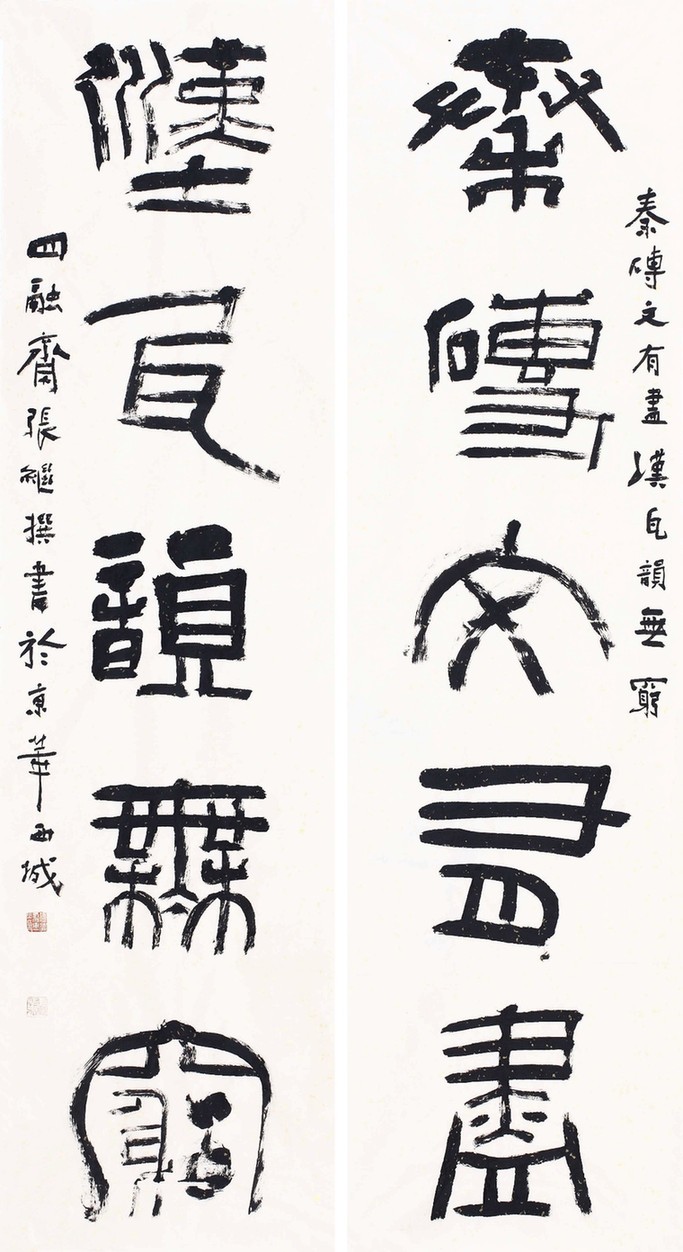 秦磚文有盡漢瓦韻無窮
秦磚文有盡
漢瓦韻無窮
四融齋張繼撰書於京華西城